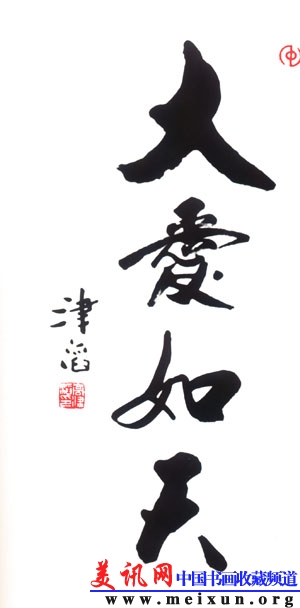 大爱如天
津滔
美讯网 中国书画收藏频道
www.meixun.org